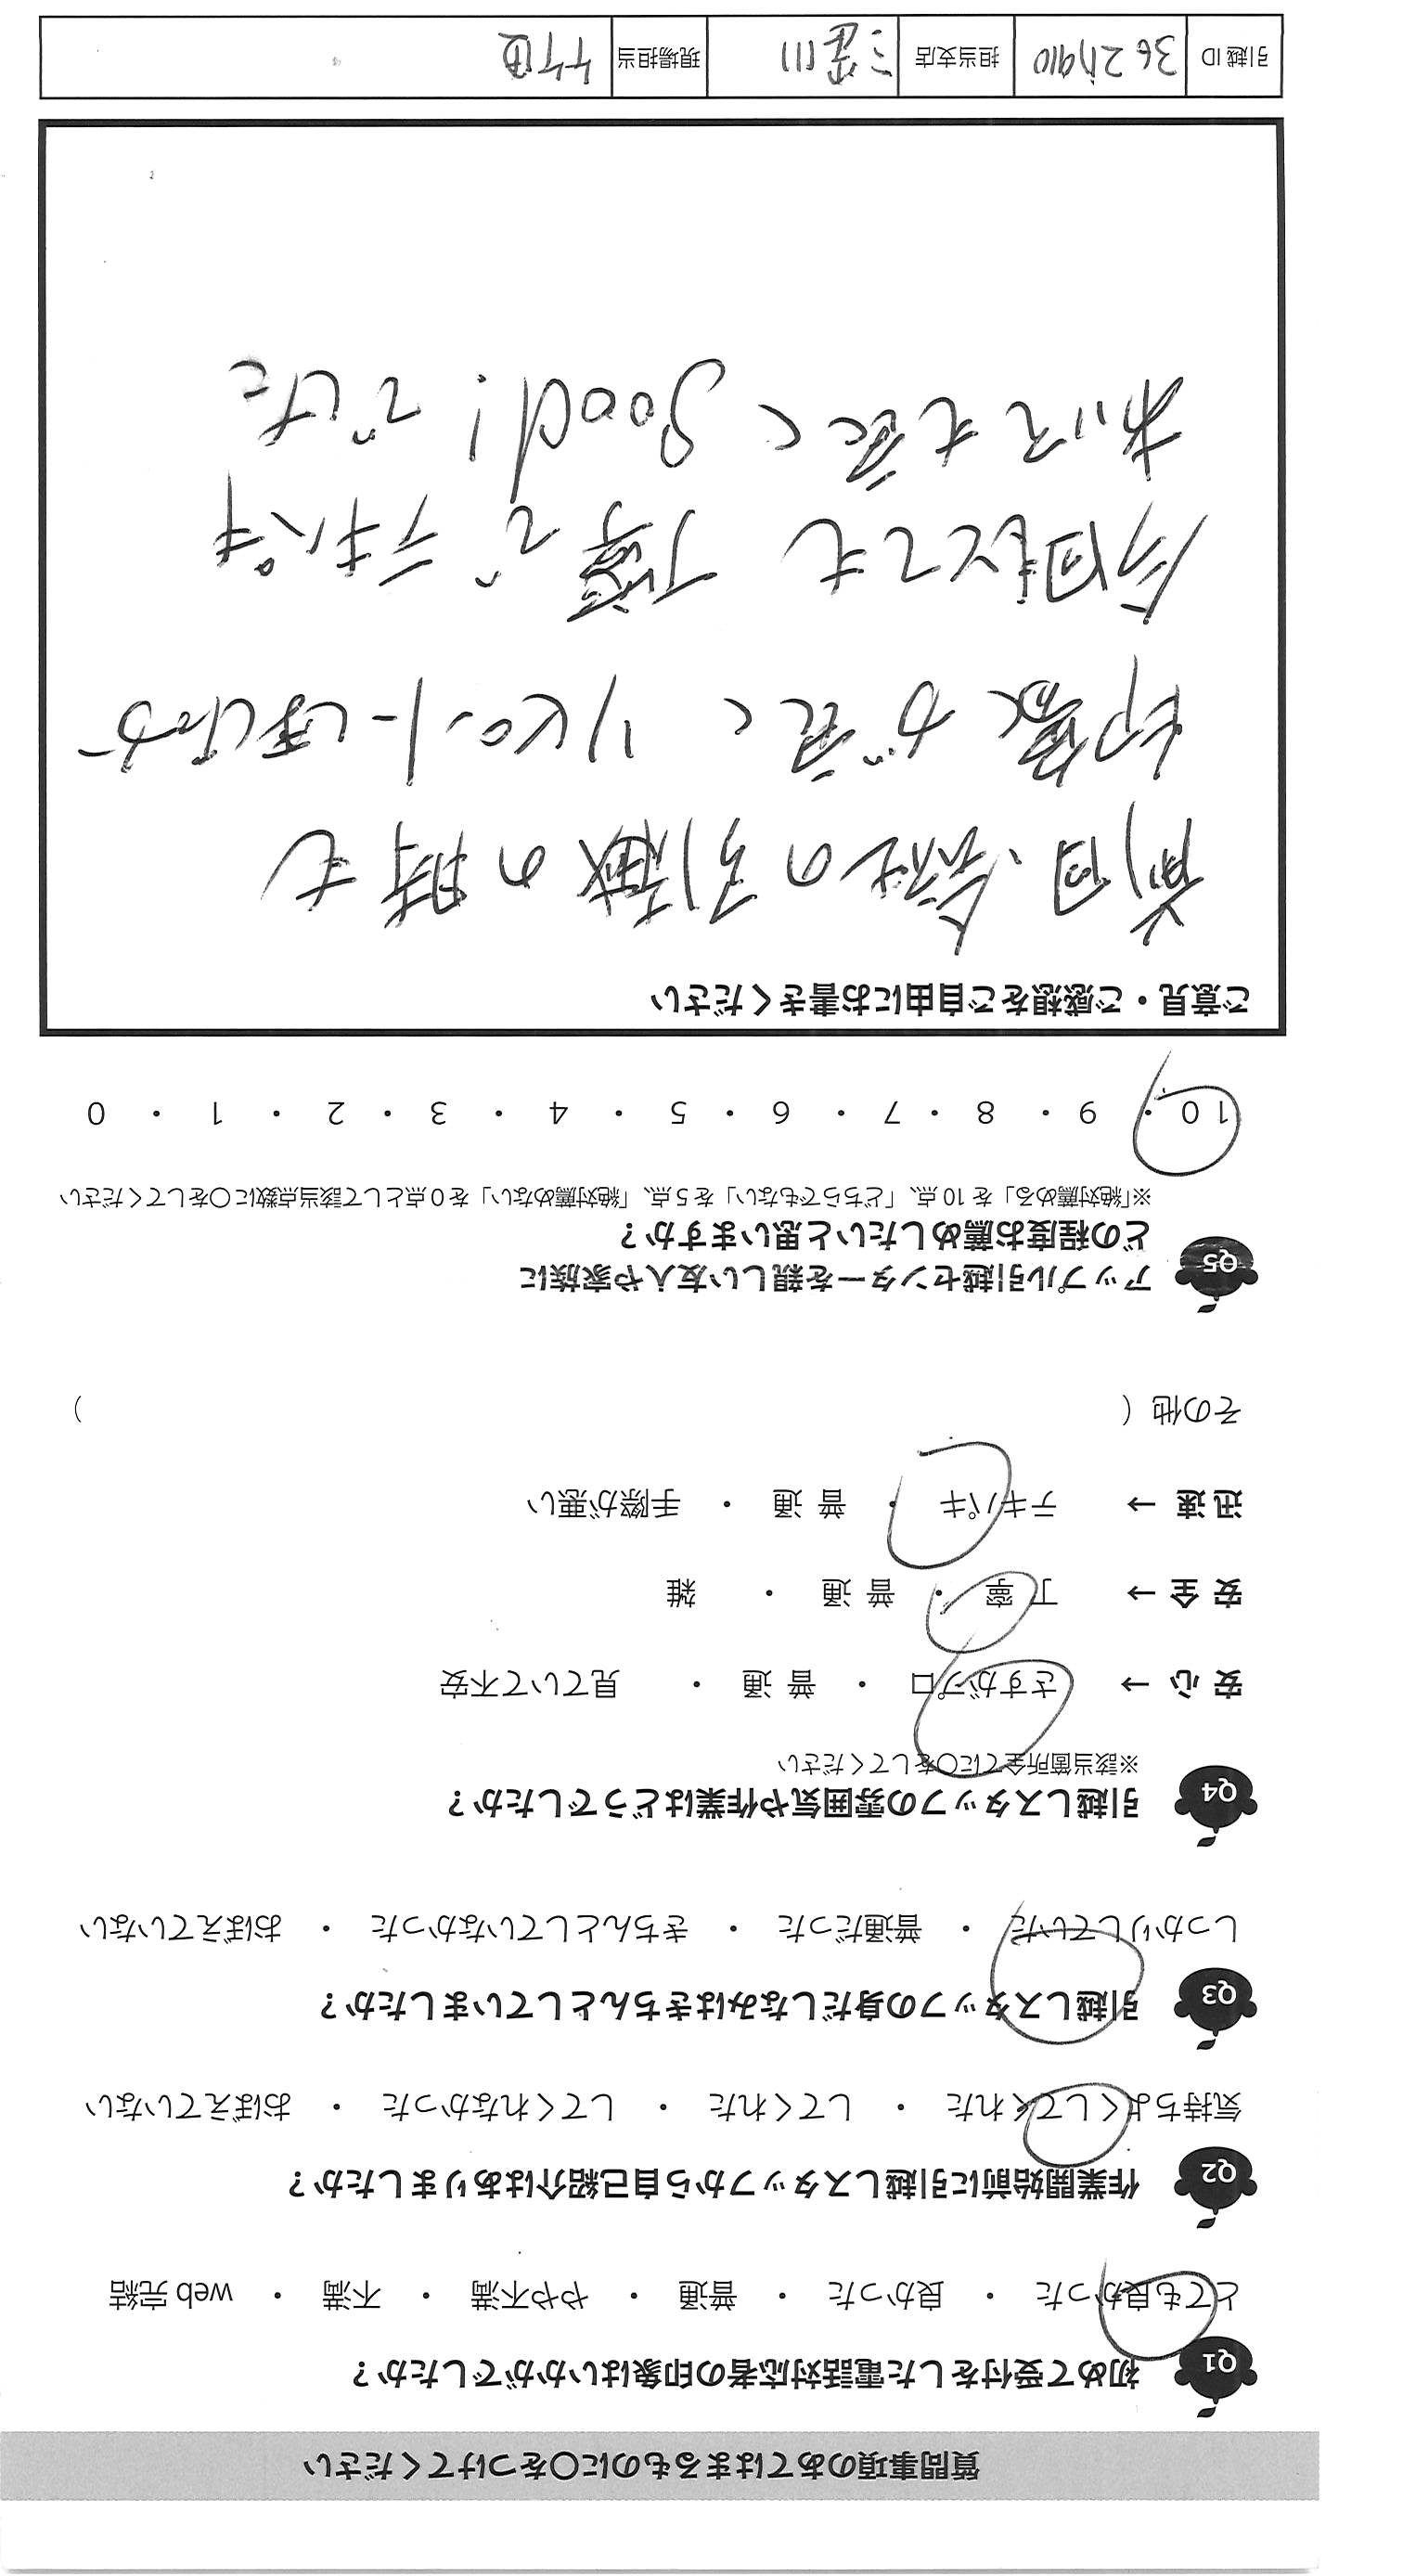 質問事項のあてはまるものに○をつけてください
Q1 初めて受付をした電話対応者の印象はいかがでしたか？
とても良かった ・ 良かった ・ 普通 ・ やや不満 ・ 不満 ・ web 完結
Q2 作業開始前に引越しスタッフから自己紹介はありましたか？
気持ちよくしてくれた ・ してくれた ・ してくれなかった ・ おぼえていない
Q3 引越しスタッフの身だしなみはきちんとしていましたか？
しっかりしていた ・ 普通だった ・ きちんとしていなかった ・ おぼえていない
Q4 引越しスタッフの雰囲気や作業はどうでしたか？
※該当箇所全てに○をしてください
安 心 → さすがプロ ・ 普 通 ・ 見ていて不安
安 全 → 丁 寧 ・ 普 通 ・ 雑
迅 速 → テキパキ ・ 普 通 ・ 手際が悪い
その他（ ）
Q5 アップル引越センターを親しい友人や家族に
どの程度お薦めしたいと思いますか？
※「絶対薦める」を 10 点、「どちらでもない」を 5 点、「絶対薦めない」を 0 点として該当点数に○をしてください
10 ・ 9 ・ 8 ・ 7 ・ 6 ・ 5 ・ 4 ・ 3 ・ 2 ・ 1 ・ 0
ご意見・ご感想をご自由にお書きください
前回、会社の引越の時も
印象が良く リピートしましたが
今回もとても 丁寧で テキパキ
おわっても良く good! でした
引越 ID 担当支店 現場担当